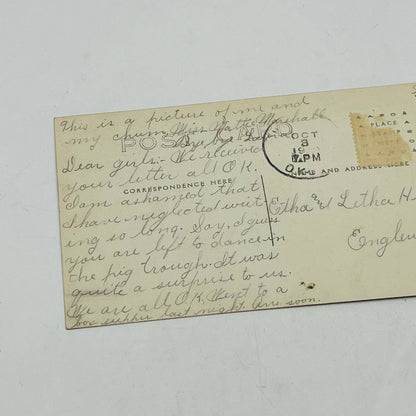 This is a picture of me and
my chum Miss Mattie Marshall
Bye bye
POST CARD
Dear girls:- We received
your letter all O.K.
CORRESPONDENCE HERE
I am ashamed that
I have neglected writ-
ing so long. Say, I guess
you are left to dance in
the pig trough. It was
quite a surprise to us.
We are all O.K. Went to a
box supper last night. Ans. soon.
OCT
8
PM
OK
PLACE
AND ADDRESS HERE
Etha and Letha H
Englew